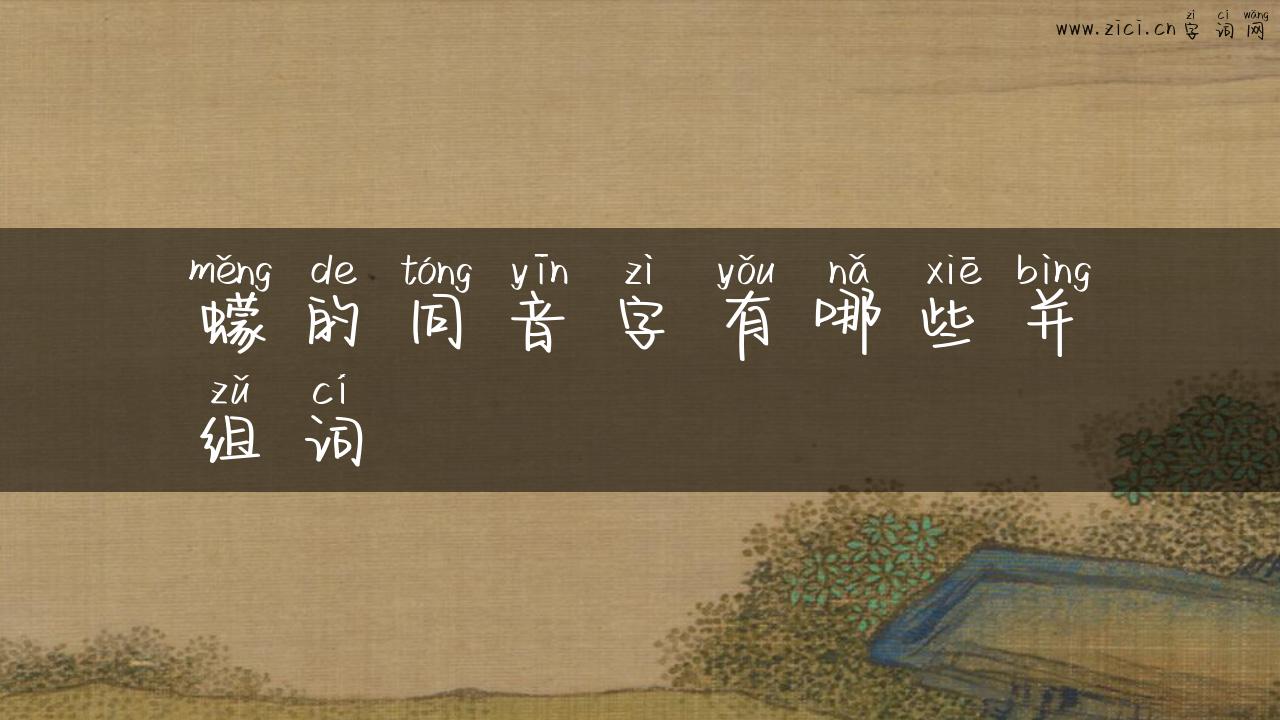 zì cí wǎng
www.zici.cn 字 词 网
měng de tóng yīn zì yǒu nǎ xiē bìng
蠓 的 同 音 字 有 哪 些 并
zǔ cí
组 词